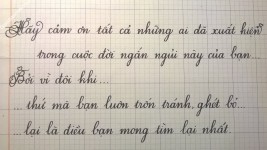 Hãy cảm ơn tất cả những ai đã xuất hiện
trong cuộc đời ngắn ngủi này của bạn...
Bởi vì đôi khi...
... thứ mà bạn luôn trốn tránh, ghét bỏ...
lại là điều bạn mong tìm lại nhất.